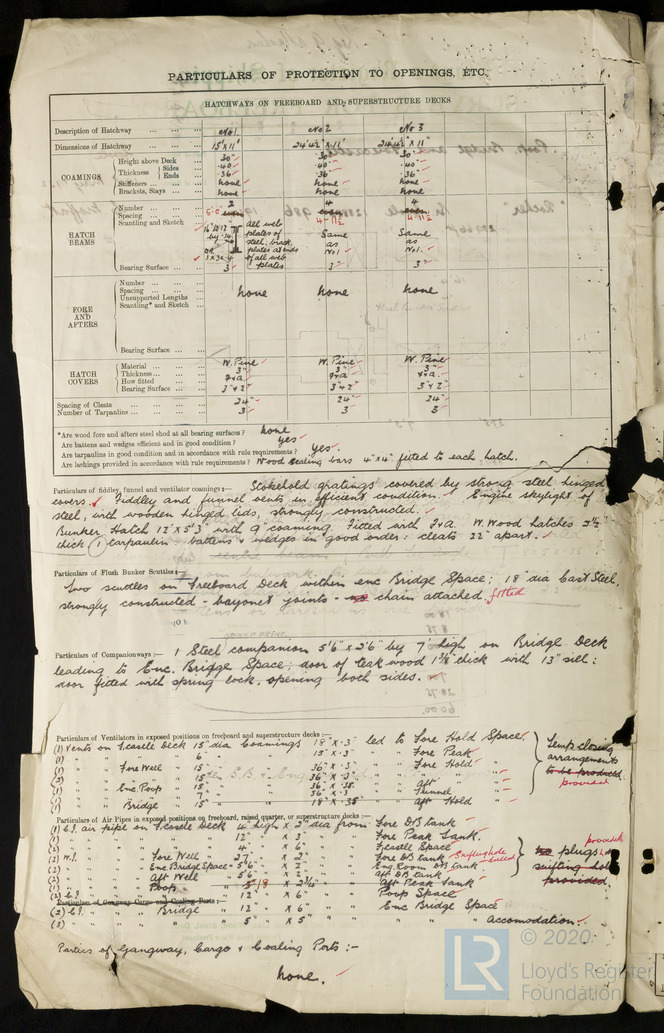 PARTICULARS OF PROTECTION TO OPENINGS, ETC.
HATCHWAYS ON FREEBOARD AND SUPERSTRUCTURE DECKS
Description of Hatchway ... ... ... No 1 No 2 No 3
Dimensions of Hatchway ... ... ... 15' x 11' 24' 4½" x 11' 24' 4½" x 11'
COAMINGS
Height above Deck 30" 30" 30"
Thickness Sides .40" .40" .40"
Ends .36" .36" .36"
Stiffeners ... ... none none none
Brackets, Stays ... ... none none none
HATCH BEAMS
Number ... ... ... 2 4 4
Spacing ... ... ... 5'0" even 4' 10½" even 4' 10½"
Scantling and Sketch
All web plates of steel, brack. plates at ends of all web plates
Same as No 1.
Same as No 1.
Bearing Surface ... ... 3" 3" 3"
FORE AND AFTERS
Number ... ... ...
Spacing ... ... ...
Unsupported Lengths none none none
Scantling* and Sketch
Bearing Surface ... ...
HATCH COVERS
Material ... ... ... W. Pine W. Pine W. Pine
Thickness ... ... ... 3" 3" 3"
How fitted ... ... F & A F & A F & A.
Bearing Surface ... ... 3" & 2" 3" & 2" 3" & 2"
Spacing of Cleats ... ... ... ... 24" 24" 24"
Number of Tarpaulins ... ... ... ... 3 3 3
*Are wood fore and afters steel shod at all bearing surfaces? none
Are battens and wedges efficient and in good condition? yes
Are tarpaulins in good condition and in accordance with rule requirements? yes.
Are lashings provided in accordance with rule requirements? Wood sealing bars 4" x 4" fitted to each hatch.
Particulars of fiddley, funnel and ventilator coamings:— Stokehold gratings covered by strong steel hinged
covers. Fiddley and funnel vents in efficient condition. Engine skylight of
steel, with wooden hinged lids, strongly constructed.
Bunker Hatch 12' x 5'3" with 9" coaming. Fitted with F & A. W. Wood hatches 2½"
thick (1) tarpaulin battens & wedges in good order: cleats 22" apart.
Particulars of Flush Bunker Scuttles:—
Two scuttles on Freeboard Deck within enc Bridge Space; 18" dia Cast Steel,
strongly constructed - bayonet joints - no chain attached. fitted
Particulars of Companionways:— 1 Steel companion 5'6" x 2'6" by 7' high on Bridge Deck
leading to Enc. Bridge Space; door of teak wood 1⅞" thick with 13" sill:
door fitted with spring lock, opening both sides.
Particulars of Ventilators in exposed positions on freeboard and superstructure decks:—
(1) Vents on F'castle Deck 15" dia Coamings 18" x .3" led to Fore Hold Space.
(1) " " " 6" " 15" x .3" " " Fore Peak
(1) " " Fore Well 15" " 36" x .3" " " Fore Hold
(2) " " " 15" " 36" x .3" " "
(1) " " Enc Poop 15" " 36" x .35" " " Aft "
(1) " " " 7" " 36" x .3" " " Tunnel
(1) " " Bridge 15" " 18" x .35" " " Aft Hold
Temp closing arrangements to be produced. provided
Particulars of Air Pipes in exposed positions on freeboard, raised quarter, or superstructure decks:—
(1) C.I. air pipe on F'castle Deck 4" high x 2" dia from Fore DB tank
(1) " " " " 12" x 3" " Fore Peak Tank.
(2) " " " " 4" x 6" " F'castle Space
(2) W.I. " " Fore Well 27" x 2" " Fore DB tank
(2) " " Enc. Bridge Space 5'6" x 2" " Eng. Room DB tank
(2) " " Aft Well 5'6" x 2" " Aft DB tank
(1) " " Poop 18" x 2½" " Aft Peak Tank
(2) C.I. " " " 12" x 6" " Poop Space
Particulars of Gangway Cargo and Coaling Ports:—
(2) C.I. " " Bridge 12" x 6" " Enc Bridge Space
(3) " " " 5" x 5" " " Accomodation.
no plugs in provided
provided.
Parties of Gangway, Cargo & Coaling Ports:-
none.
LR
© 2020
Lloyd's Register
Foundation